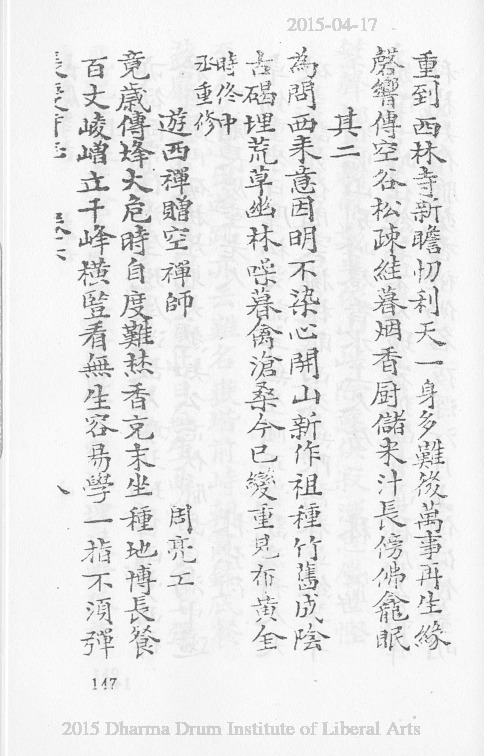 2015-04-17
重到西林寺新瞻忉利天一身多難後萬事再生緣
磬響傳空谷松疎絓暮烟香厨儲米汁長傍佛龕眠
其二
為問西来意因明不染心開山新作祖種竹舊成陰
古碣埋荒草幽林呼暮禽滄桑今已變重見布黃金
時佟中
丞重修
遊西禪贈空禪師
周亮工
竟歲傳烽火危時自度難爇香克末坐種地博長餐
百丈崚嶒立千峰橫豎看無生容易學一指不須彈
八
147
2015 Dharma Drum Institute of Liberal Arts